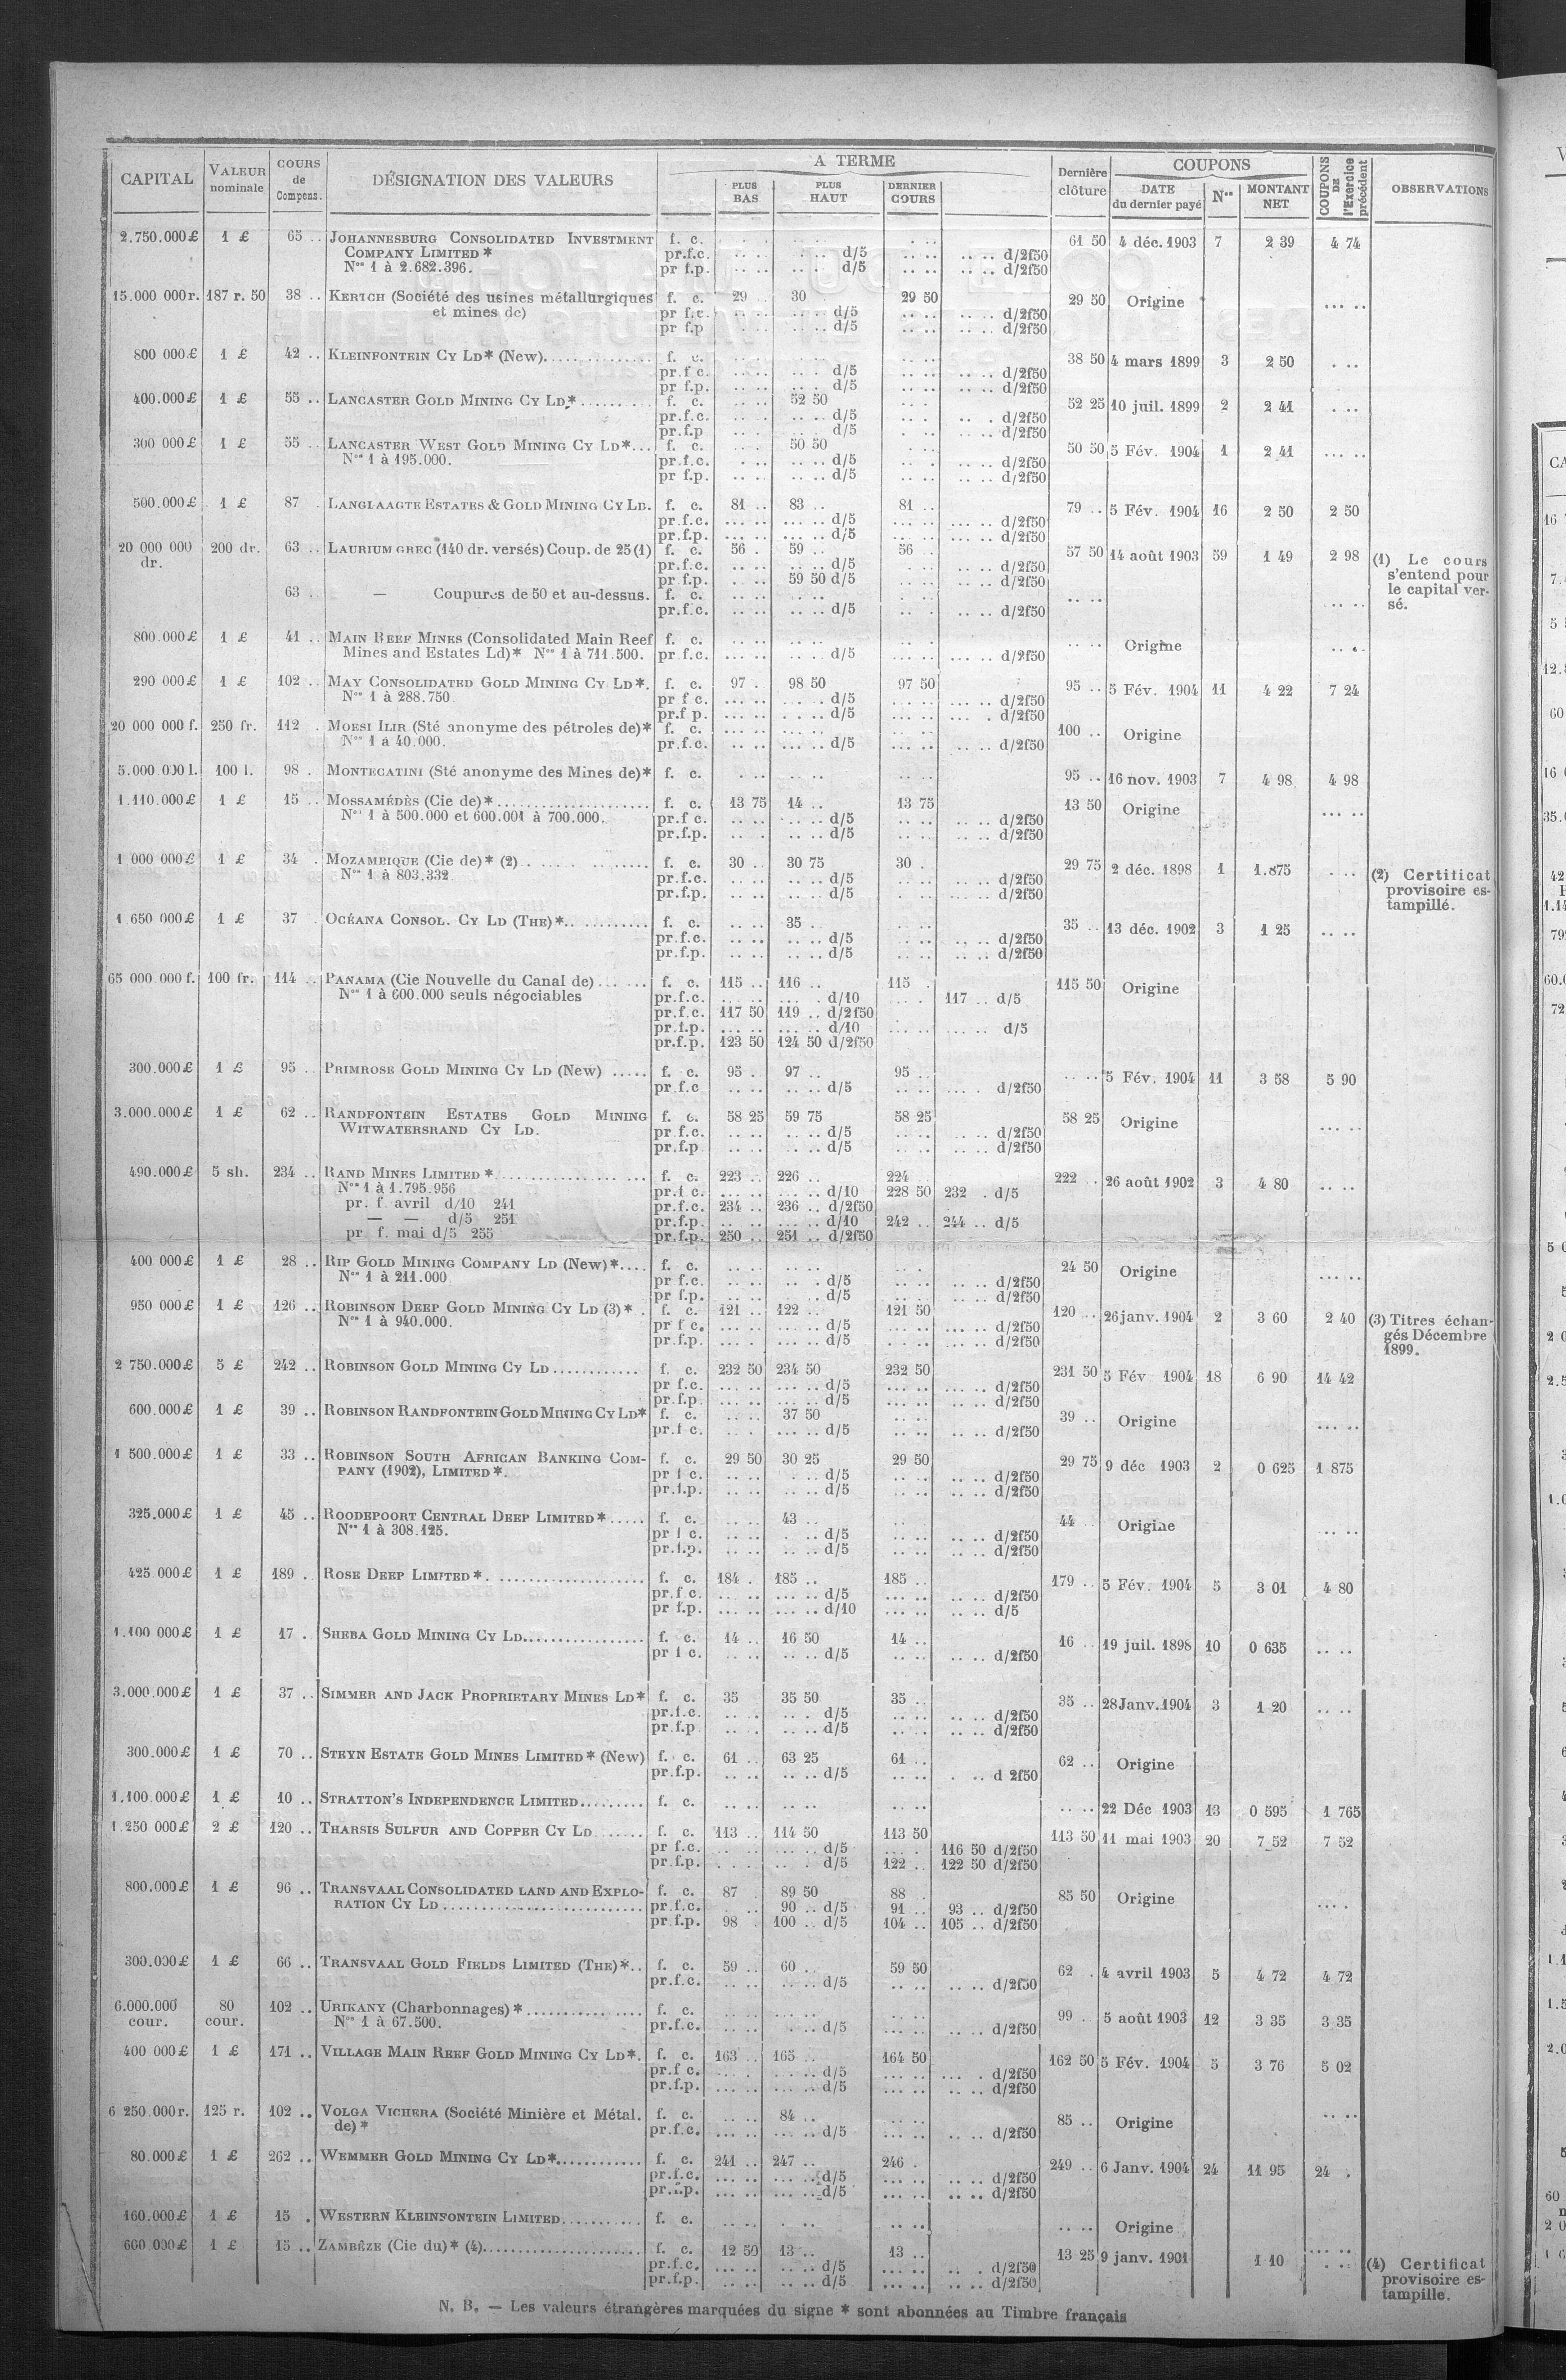 CAPITAL VALEUR nominale COURS de Compens. DÉSIGNATION DES VALEURS A TERME PLUS BAS PLUS HAUT DERNIER COURS Dernière clôture COUPONS DATE du dernier payé Nos MONTANT NET COUPONS DE l'Exercice précédent OBSERVATIONS
2.750.000£ 1 £ 65 .. JOHANNESBURG CONSOLIDATED INVESTMENT f. c. 61 50 4 déc. 1903 7 2 39 4 74
COMPANY LIMITED * pr.f.c. .. .. d/5 .. .. d/2f50
Nos 1 à 2.682.396. pr f.p. .. .. d/5 .. .. d/2f50
15.000 000r. 187 r. 50 38 .. KERTCH (Société des usines métallurgiques f. c. 29 .. 30 29 50 29 50 Origine
et mines de) pr f.c. .. .. d/5 .. .. d/2f50
pr f.p .. .. d/5 .. .. d/2f50
800 000£ 1 £ 42 .. KLEINFONTEIN CY LD* (New) f. c. 38 50 4 mars 1899 3 2 50
pr.f c. .. .. d/5 .. .. d/2f50
pr f.p. .. .. d/5 .. .. d/2f50
400.000£ 1 £ 55 .. LANCASTER GOLD MINING CY LD* f. c. 52 50 52 25 10 juil. 1899 2 2 41
pr.f.c. .. .. d/5 .. .. d/2f50
pr.f.p .. .. d/5 .. .. d/2f50
300 000£ 1 £ 55 .. LANCASTER WEST GOLD MINING CY LD* f. c. 50 50 50 50 5 Fév. 1904 1 2 41
Nos 1 à 195.000. pr.f.c. .. .. d/5 .. .. d/2f50
pr f.p. .. .. d/5 .. .. d/2f50
500.000£ 1 £ 87 LANGLAAGTE ESTATES & GOLD MINING CY LD. f. c. 81 .. 83 .. 81 .. 79 .. 5 Fév. 1904 16 2 50 2 50
pr.f.c. .. .. d/5 .. .. d/2f50
pr.f.p. .. .. d/5 .. .. d/2f50
20 000 000 200 dr. 63 .. LAURIUM GREC (140 dr. versés) Coup. de 25 (1) f. c. 56 . 59 .. 56 .. 57 50 14 août 1903 59 1 49 2 98 (1) Le cours
dr. pr.f.c. .. .. d/5 .. .. d/2f50 s'entend pour
pr f.p. 59 50 d/5 .. .. d/2f50 le capital ver-
63 . — Coupures de 50 et au-dessus. f. c. sé.
pr.f.c. .. .. d/5 .. .. d/2f50
800.000£ 1 £ 41 .. MAIN REEF MINES (Consolidated Main Reef f. c. Origine
Mines and Estates Ld)* Nos 1 à 711.500. pr f.c. .. .. d/5 .. .. d/2f50
290 000£ 1 £ 102 .. MAY CONSOLIDATED GOLD MINING CY LD*. f. c. 97 . 98 50 97 50 95 .. 5 Fév. 1904 11 4 22 7 24
Nos 1 à 288.750 pr f c. .. .. d/5 .. .. d/2f50
pr.f p. .. .. d/5 .. .. d/2f50
20 000 000 f. 250 fr. 112 . MOESI ILIR (Sté anonyme des pétroles de)* f. c. 100 .. Origine
Nos 1 à 40.000. pr.f.c. .. .. d/5 .. .. d/2f50
5.000 000 l. 100 l. 98 . MONTECATINI (Sté anonyme des Mines de)* f. c. 95 .. 16 nov. 1903 7 4 98 4 98
1.110.000£ 1 £ 15 .. MOSSAMÉDÈS (Cie de)* f. c. 13 75 14 .. 13 75 13 50 Origine
Nos 1 à 500.000 et 600.001 à 700.000. pr.f c. .. .. d/5 .. .. d/2f50
pr.f.p. .. .. d/5 .. .. d/2f50
1 000 000£ 1 £ 34 . MOZAMBIQUE (Cie de)* (2) f. c. 30 .. 30 75 30 . 29 75 2 déc. 1898 1 1.875 (2) Certificat
Nos 1 à 803.332 pr.f.c. .. .. d/5 .. .. d/2f50 provisoire es-
pr.f.p. .. .. d/5 .. .. d/2f50 tampillé.
1 650 000£ 1 £ 37 . OCÉANA CONSOL. CY LD (THE)* f. c. 35 . 35 .. 13 déc. 1902 3 1 25
pr.f.c. .. .. d/5 .. .. d/2f50
pr.f.p. .. .. d/5 .. .. d/2f50
65 000.000 f. 100 fr. 114 .. PANAMA (Cie Nouvelle du Canal de) f. c. 115 .. 116 .. 115 . 115 50 Origine
Nos 1 à 600.000 seuls négociables pr.f.c. .. .. d/10 117 .. d/5
pr.f.c. 117 50 119 .. d/2f50
pr.f.p. .. .. d/10 .. .. d/5
pr.f.p. 123 50 124 50 d/2f50
300.000£ 1 £ 95 .. PRIMROSE GOLD MINING CY LD (New) f. c. 95 . 97 .. 95 .. 5 Fév. 1904 11 3 58 5 90
pr.f.c .. .. d/5 .. .. d/2f50
3.000.000£ 1 £ 62 .. RANDFONTEIN ESTATES GOLD MINING f. c. 58 25 59 75 58 25 58 25 Origine
WITWATERSRAND CY LD. pr.f.c. .. .. d/5 .. .. d/2f50
pr.f.p .. .. d/5 .. .. d/2f50
490.000£ 5 sh. 234 .. RAND MINES LIMITED * f. c. 223 .. 226 .. 224 222 . 26 août 1902 3 4 80
Nos 1 à 1.795.956 pr.f c. .. .. d/10 228 50 232 . d/5
pr. f. avril d/10 241 pr.f.c. 234 .. 236 .. d/2f50
— — d/5 251 pr.f.p. .. .. d/10 242 .. 244 .. d/5
pr. f. mai d/5 255 pr.f.p. 250 .. 251 .. d/2f50
400 000£ 1 £ 28 .. RIP GOLD MINING COMPANY LD (New)* f. c. 24 50 Origine
Nos 1 à 211.000 pr f.c. .. .. d/5 .. .. d/2f50
pr f.p. .. .. d/5 .. .. d/2f50
950 000£ 1 £ 126 .. ROBINSON DEEP GOLD MINING CY LD (3)* f. c. 121 .. 122 .. 121 50 120 .. 26 janv. 1904 2 3 60 2 40 (3) Titres échan-
Nos 1 à 940.000. pr f c. .. .. d/5 .. .. d/2f50 gés Décembre
pr.f.p. .. .. d/5 .. .. d/2f50 1899.
2 750.000£ 5 £ 242 .. ROBINSON GOLD MINING CY LD f. c. 232 50 234 50 232 50 231 50 5 Fév 1904 18 6 90 14 42
pr f.c. .. .. d/5 .. .. d/2f50
pr.f.p. .. .. d/5 .. .. d/2f50
600.000£ 1 £ 39 .. ROBINSON RANDFONTEIN GOLD MINING CY LD* f. c. 37 50 39 .. Origine
pr.f c. .. .. d/5 .. .. d/2f50
1 500.000£ 1 £ 33 .. ROBINSON SOUTH AFRICAN BANKING COM- f. c. 29 50 30 25 29 50 29 75 9 déc 1903 2 0 625 1 875
PANY (1902), LIMITED*. pr f c. .. .. d/5 .. .. d/2f50
pr.f.p. .. .. d/5 .. .. d/2f50
325.000£ 1 £ 45 .. ROODEPOORT CENTRAL DEEP LIMITED* f. c. 43 .. 44 Origine
Nos 1 à 308.125. pr f c. .. .. d/5 .. .. d/2f50
pr.f.p. .. .. d/5 .. .. d/2f50
425 000£ 1 £ 189 .. ROSE DEEP LIMITED*. f. c. 184 . 185 .. 185 .. 179 .. 5 Fév. 1904 5 3 01 4 80
pr.f c. .. .. d/5 .. .. d/2f50
pr f.p. .. .. d/10 .. .. d/5
1.100 000£ 1 £ 17 . SHEBA GOLD MINING CY LD f. c. 14 .. 16 50 14 .. 16 .. 19 juil. 1898 10 0 635
pr f c. .. .. d/5 .. .. d/2f50
3.000.000£ 1 £ 37 .. SIMMER AND JACK PROPRIETARY MINES LD* f. c. 35 35 50 35 .. 35 .. 28 Janv. 1904 3 1 20
pr.f.c. .. .. d/5 .. .. d/2f50
pr.f.p .. .. d/5 .. .. d/2f50
300.000£ 1 £ 70 .. STEYN ESTATE GOLD MINES LIMITED* (New) f. c. 61 .. 63 25 61 .. 62 .. Origine
pr.f.p. .. .. d/5 .. .. d 2f50
1.100.000£ 1 £ 10 .. STRATTON'S INDEPENDENCE LIMITED f. c. 22 Déc 1903 13 0 595 1 765
1.250 000£ 2 £ 120 .. THARSIS SULFUR AND COPPER CY LD f. c. 113 .. 114 50 113 50 113 50 11 mai 1903 20 7 52 7 52
pr f.c. .. .. d/5 116 50 d/2f50
pr.f.p. .. .. d/5 122 .. 122 50 d/2f50
800.000£ 1 £ 96 .. TRANSVAAL CONSOLIDATED LAND AND EXPLO- f. c. 87 89 50 88 85 50 Origine
RATION CY LD pr f.c. 90 .. d/5 91 .. 93 .. d/2f50
pr.f.p. 98 100 .. d/5 104 .. 105 .. d/2f50
300.000£ 1 £ 66 .. TRANSVAAL GOLD FIELDS LIMITED (THE)* f. c. 59 .. 60 .. 59 50 62 . 4 avril 1903 5 4 72 4 72
pr.f.c. .. .. d/5 .. .. d/2f50
6.000.000 80 102 .. URIKANY (Charbonnages)* f. c. 99 . 5 août 1903 12 3 35 3 35
cour. cour. Nos 1 à 67.500. pr.f.c. .. .. d/5 .. .. d/2f50
400 000£ 1 £ 171 .. VILLAGE MAIN REEF GOLD MINING CY LD*. f. c. 163 .. 165 .. 164 50 162 50 5 Fév. 1904 5 3 76 5 02
pr.f c. .. .. d/5 .. .. d/2f50
pr.f.p. .. .. d/5 .. .. d/2f50
6 250.000r. 125 r. 102 .. VOLGA VICHERA (Société Minière et Métal. f. c. 84 .. 85 .. Origine
de)* pr.f.c. .. .. d/5 .. .. d/2f50
80.000£ 1 £ 262 .. WEMMER GOLD MINING CY LD* f. c. 241 .. 247 .. 246 . 249 .. 6 Janv. 1904 24 11 95 24 .
pr.f.c. .. .. d/5 .. .. d/2f50
pr.f.p. .. .. d/5 .. .. d/2f50
160.000£ 1 £ 15 . WESTERN KLEINFONTEIN LIMITED f. c. Origine
600 000£ 1 £ 15 .. ZAMBÈZE (Cie du)* (4) f. c. 12 50 13 .. 13 .. 13 25 9 janv. 1901 1 10 (4) Certificat
pr.f.c. .. .. d/5 .. .. d/2f50 provisoire es-
pr.f.p. .. .. d/5 .. .. d/2f50 tampille.
N. B. — Les valeurs étrangères marquées du signe * sont abonnées au Timbre français